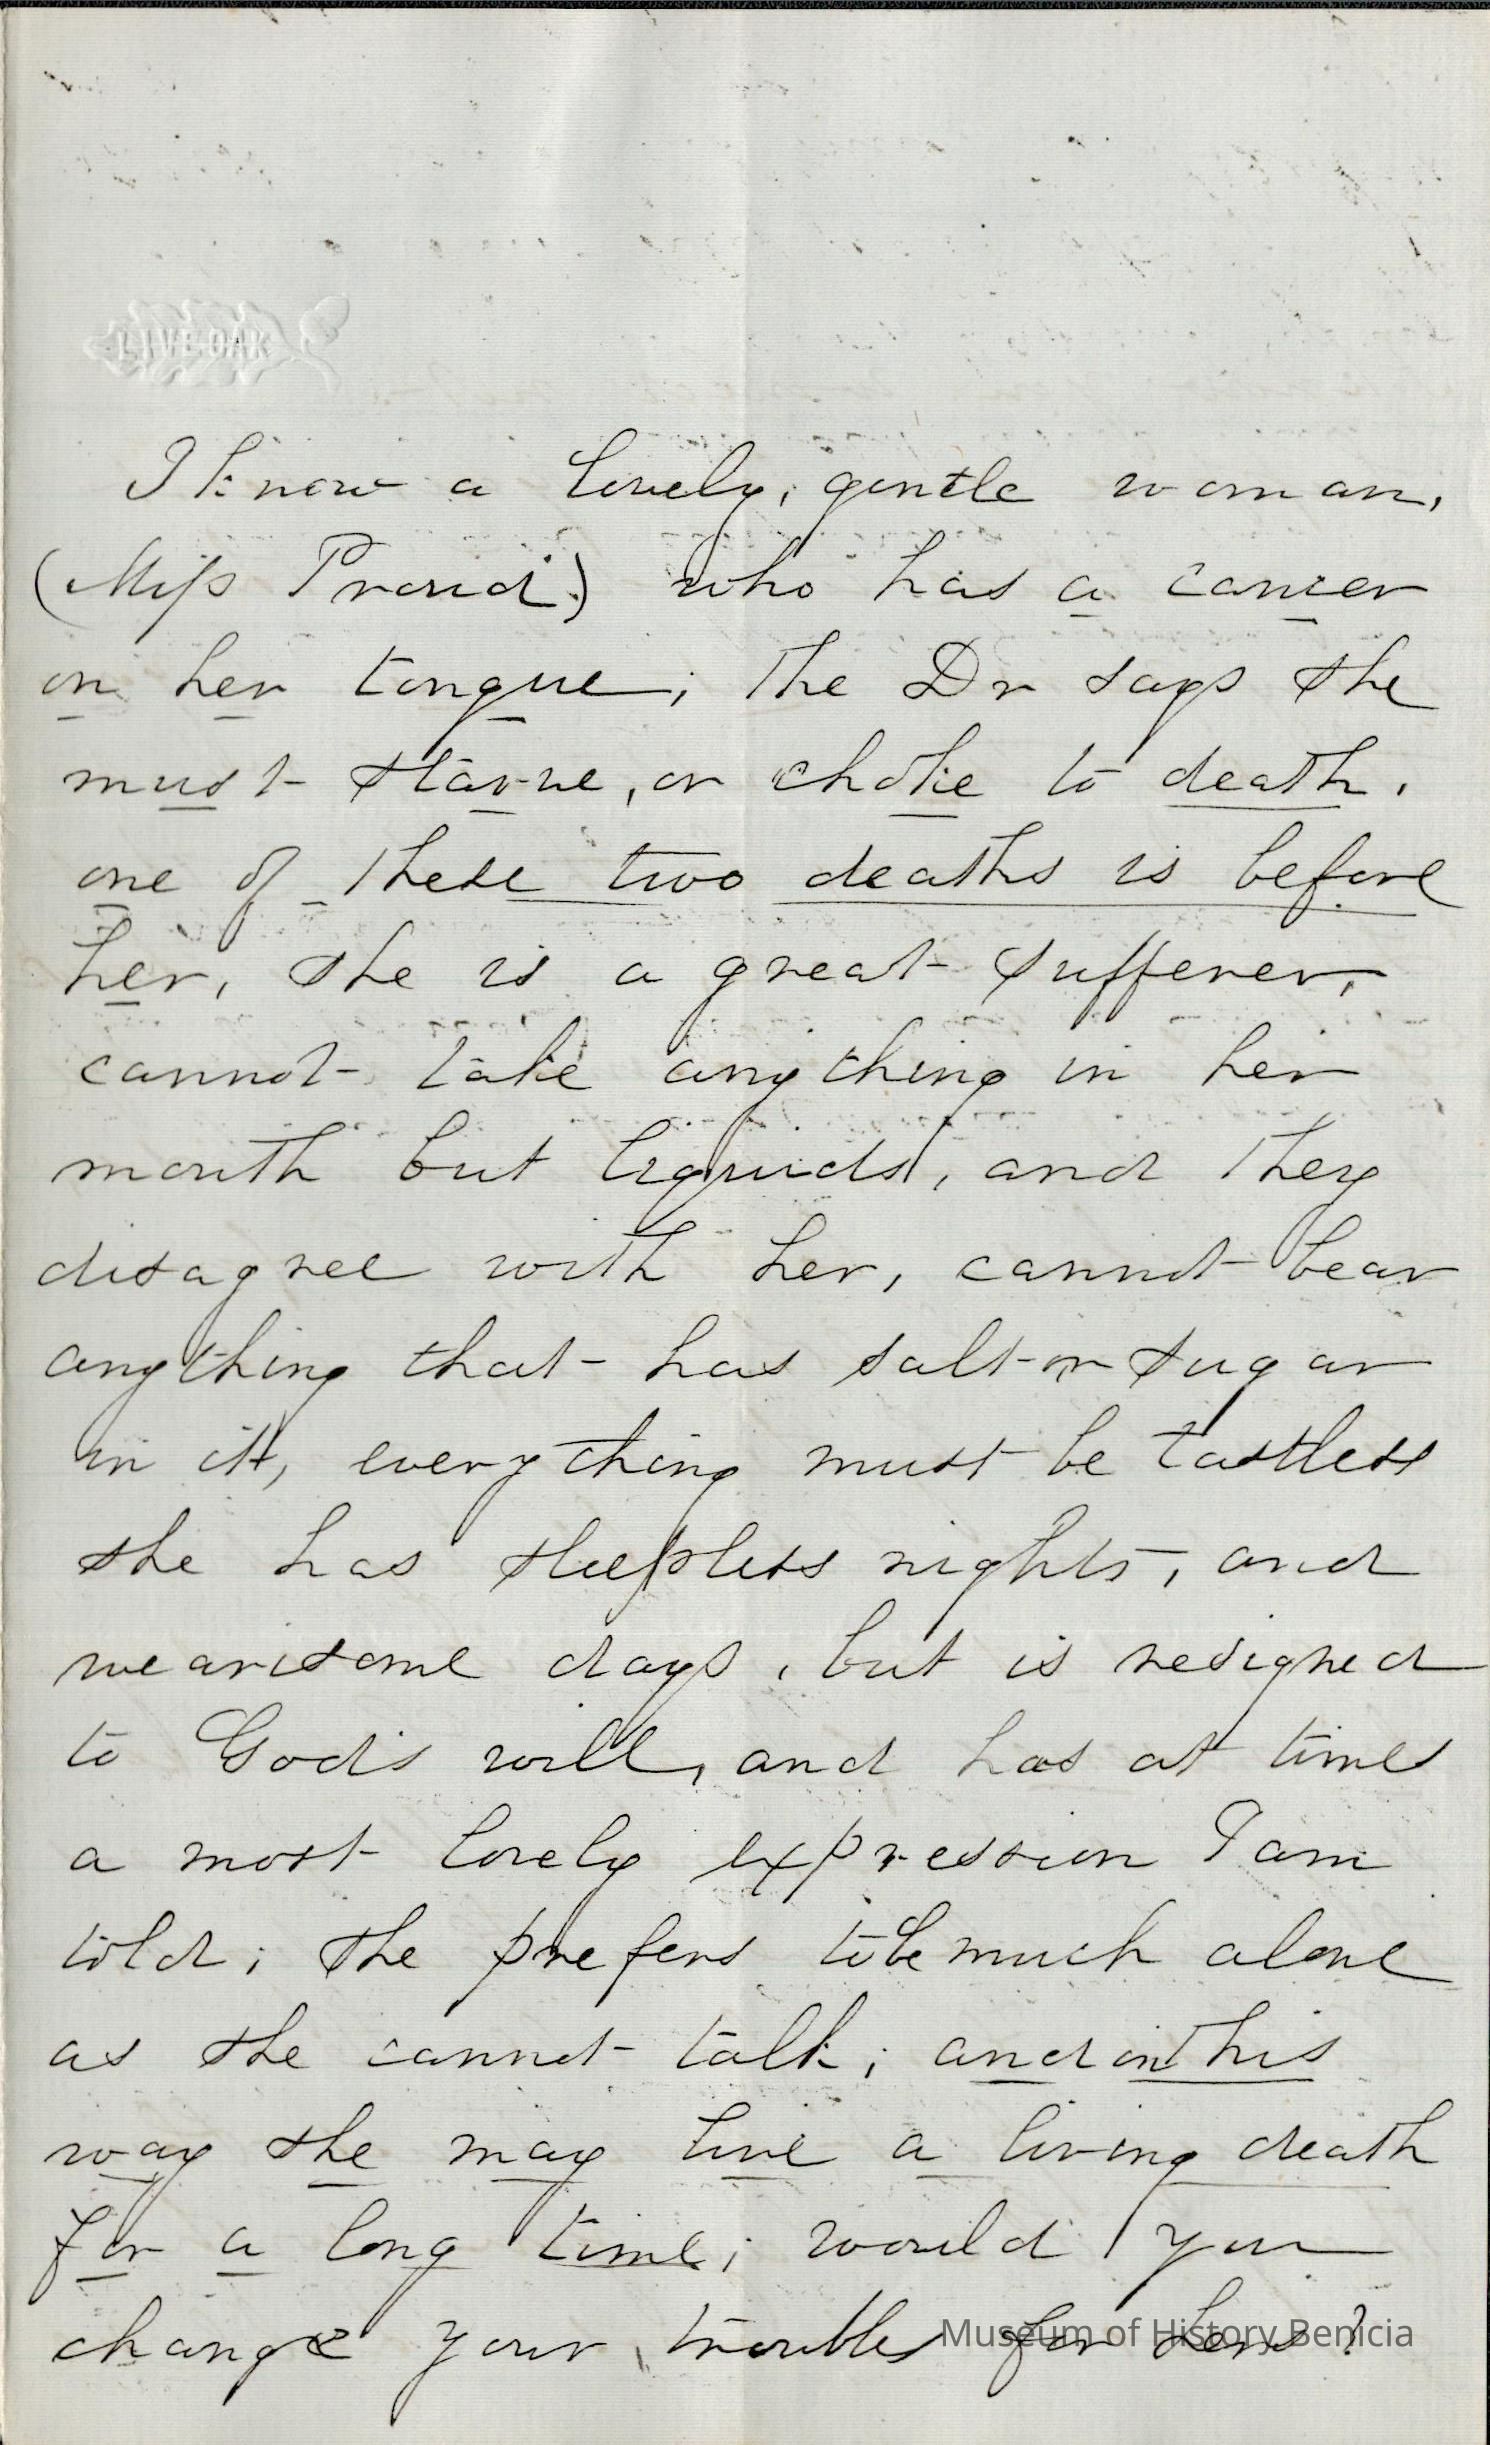 LIVE OAK
I know a lovely, gentle woman,
(Miss Proud) who has a cancer
on her tongue; the Dr says she
must starve, or choke to death.
one of these two deaths is before
her, she is a great sufferer,
cannot take anything in her
mouth but liquids, and they
disagree with her, cannot bear
anything that has salt or sugar
in it, everything must be tastless
she has sleepless nights, and
wearisome days, but is resigned
to God's will, and has at times
a most lovely expression I am
told; she prefers to be much alone
as she cannot talk; and in this
way she may live a living death
for a long time; would you
change your troubles for hers?
Museum of History Benicia